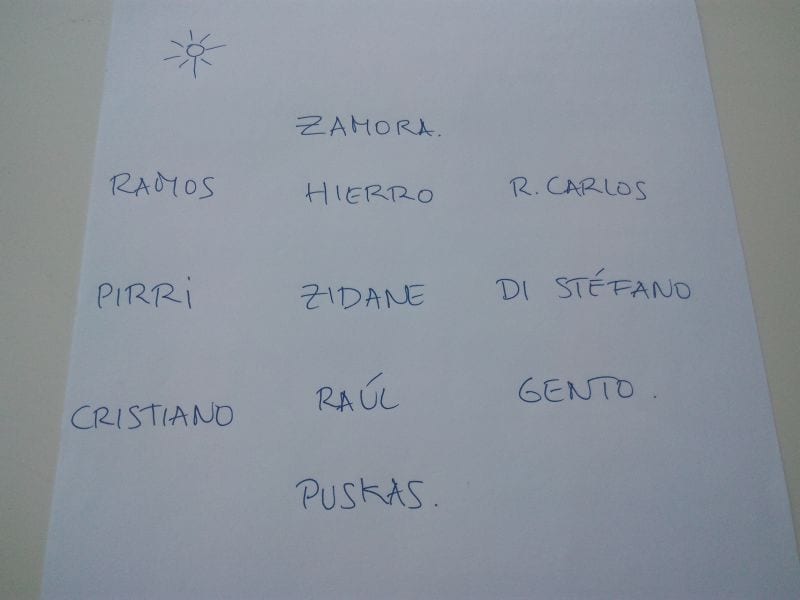 ZAMORA.
RAMOS HIERRO R. CARLOS
PIRRi ZIDANE DI STÉFANO
CRISTIANO RAÚL GENTO.
PUSKAS.